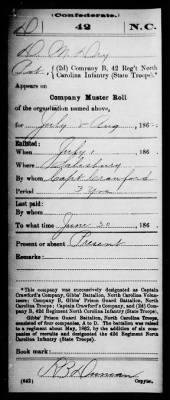 (Confederate.)
D 42 N.C.
D. M. Dry
Pvt, (2d) Company B, 42 Reg't North
Carolina Infantry (State Troops).*
Appears on
Company Muster Roll
of the organization named above,
for July & Aug, 186
Enlisted:
When July 1, 186
Where Salisbury
By whom Capt. Crawford
Period 3 Yrs
Last paid:
By whom
To what time June 30, 186
Present or absent Present
Remarks:
*This company was successively designated as Captain
Crawford's Company, Gibbs' Battalion, North Carolina Volun-
teers; Company B, Gibbs' Prison Guard Battalion, North
Carolina Troops; Captain Crawford's Company, and (2d) Com-
pany B, 42d Regiment North Carolina Infantry (State Troops).
Gibbs' Prison Guard Battalion, North Carolina Troops,
consisted of four companies, A to D. The battalion was raised
to a regiment about May, 1862, by the addition of six com-
panies or recruits and designated the 42d Regiment North
Carolina Infantry (State Troops).
Book mark:
(642) Duncan
Copyist.